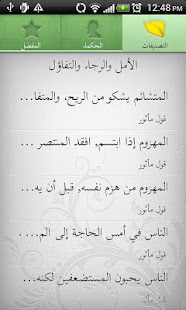 12:48 PM
التصنيفات
الحكماء
المفضل
الأمل والرجاء والتفاؤل
المتشائم يشكو من الريح، والمتفا...
قول مأثور
المهزوم إذا ابتسم, افقد المنتصر ...
قول مأثور
المهزوم من هزم نفسه, قبل أن يه...
قول مأثور
الناس في أمس الحاجة إلى الم...
قول مأثور
الناس يحبون المستضعفين لكنه...